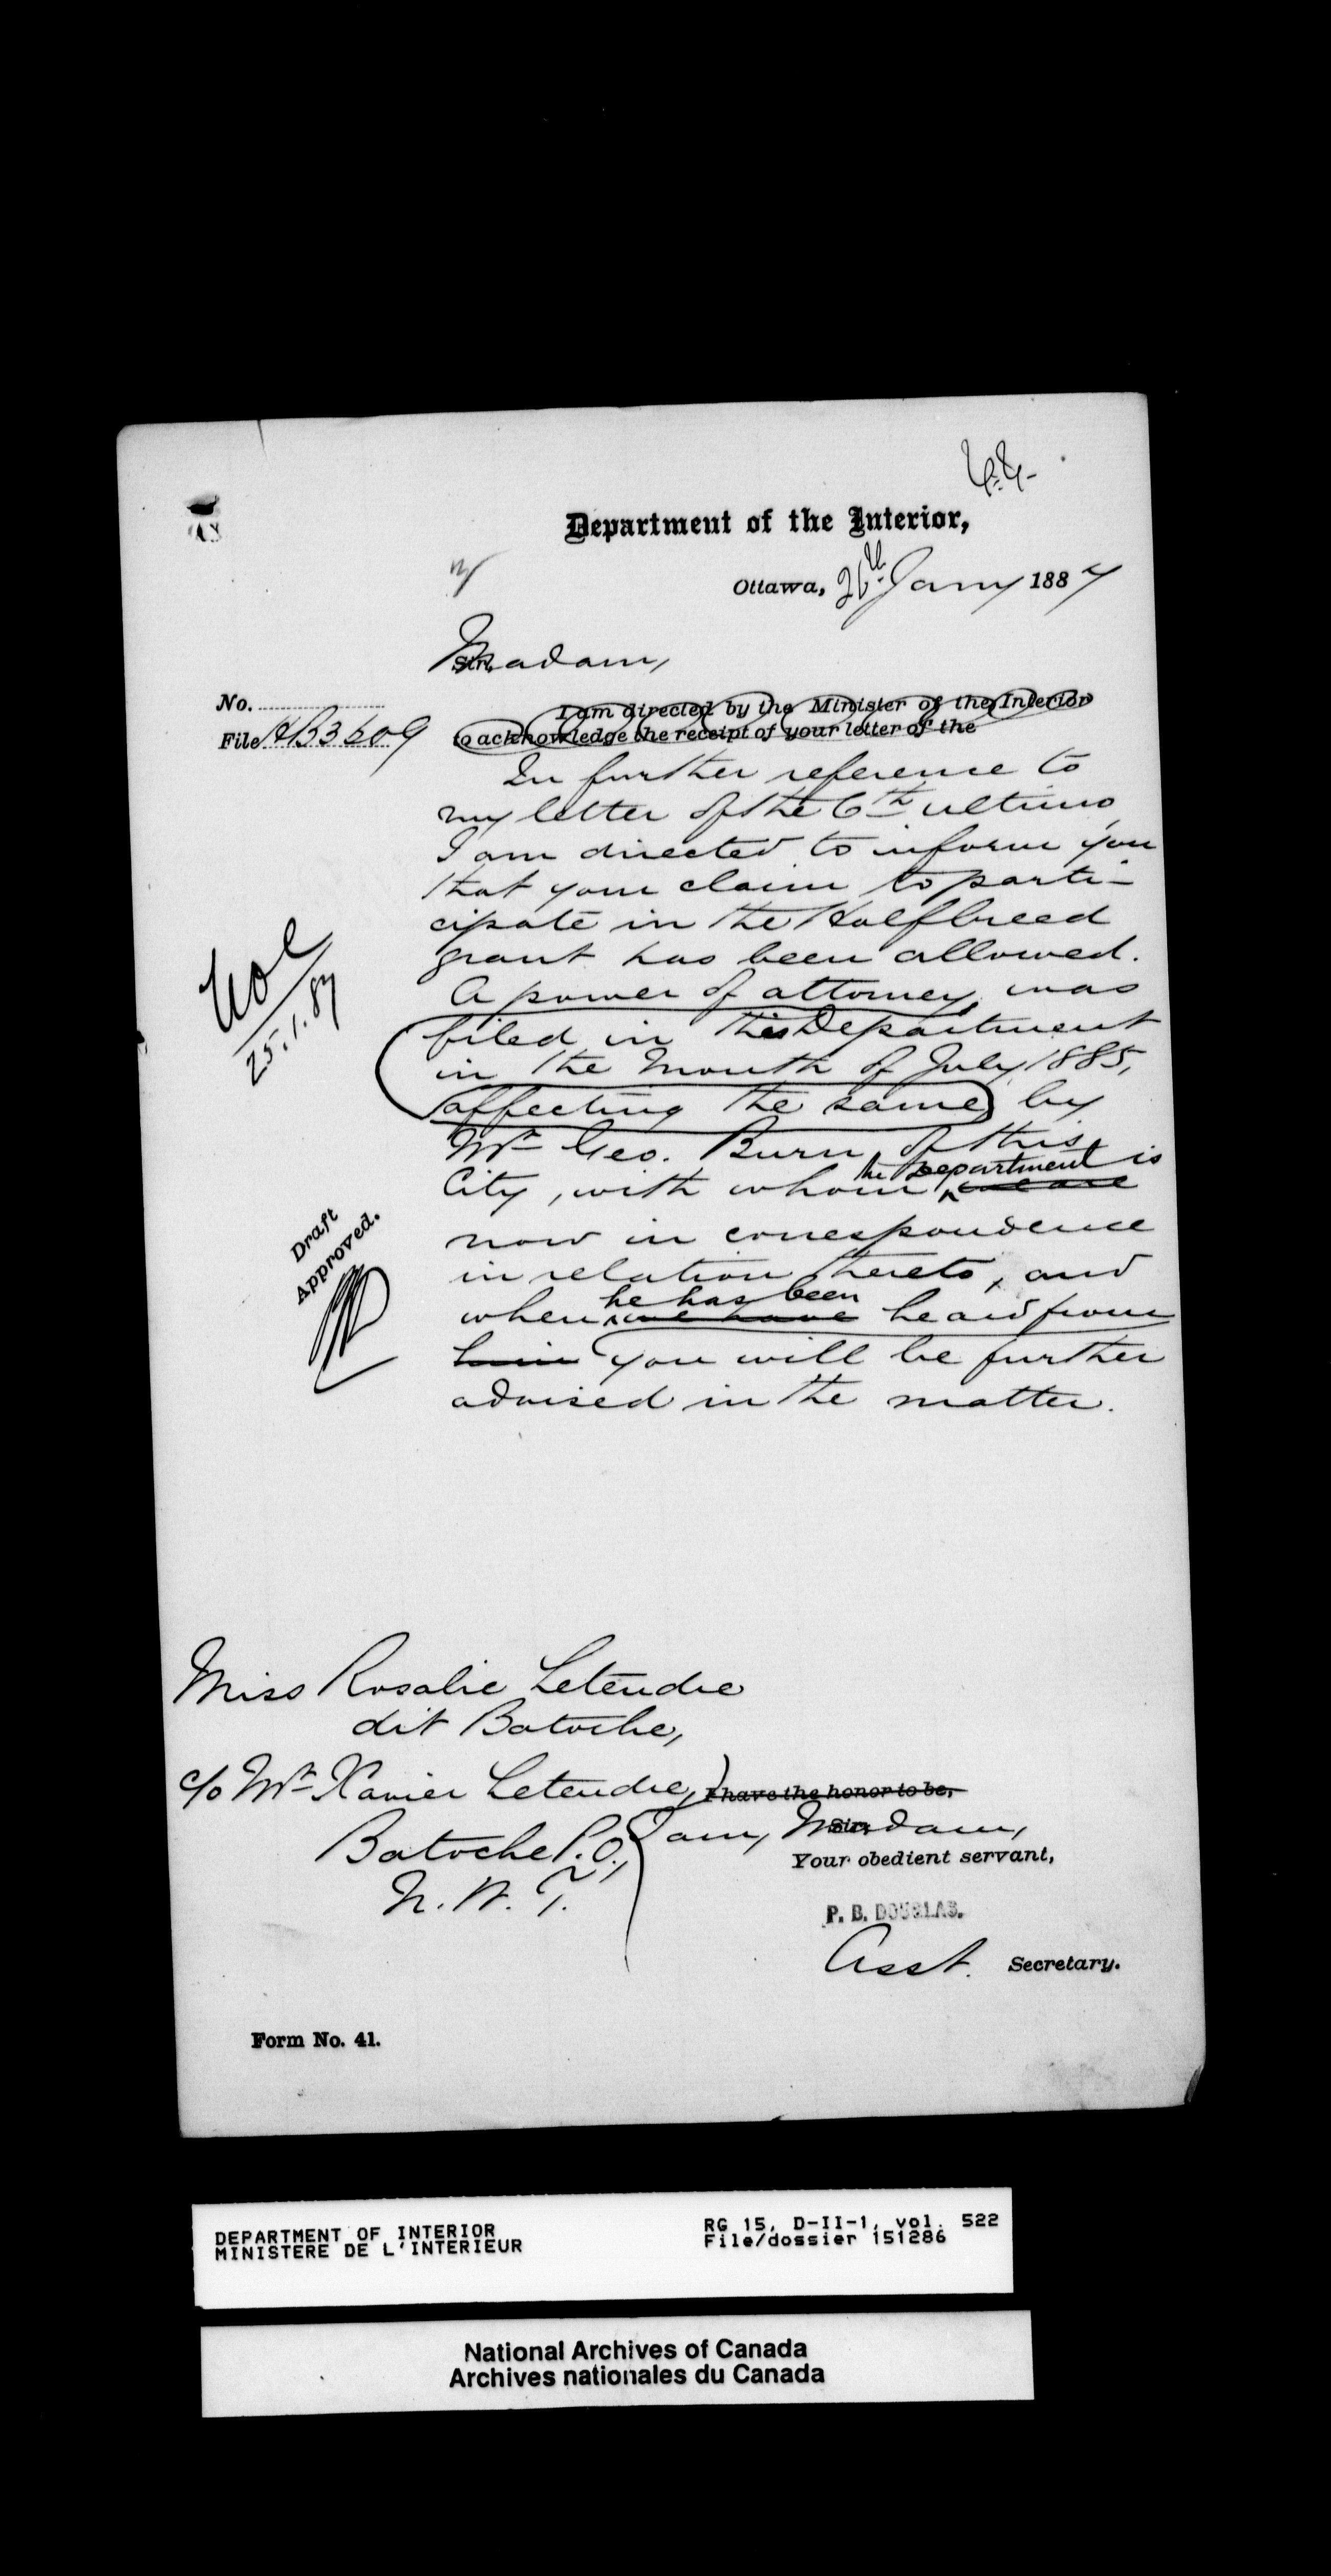 Department of the Interior,
Ottawa, 26th Jany 1887
Madam,
No.
File HB3609
I am directed by the Minister of the Interior
to acknowledge the receipt of your letter of the
In further reference to
my letter of the 6th ultimo,
I am directed to inform you
that your claim to parti-
cipate in the Halfbreed
grant has been allowed.
A power of attorney was
filed in this Department
in the month of July 1885,
affecting the same by
Mr Geo. Burn, of this
City, with whom the Department is we are
now in correspondence
in relation thereto, and
when he has been we have heard from
him you will be further
advised in the matter.
25.1.87
Draft
Approved.
Miss Rosalie Letendre
dit Batoche,
c/o Mr Xavier Letendre,
Batoche P.O.,
N. W. T.
I have the honor to be,
I am, Madam,
Your obedient servant,
P. B. DOUGLAS.
Asst. Secretary.
Form No. 41.
DEPARTMENT OF INTERIOR
MINISTERE DE L'INTERIEUR
RG 15, D-II-1, vol. 522
File/dossier 151286
National Archives of Canada
Archives nationales du Canada